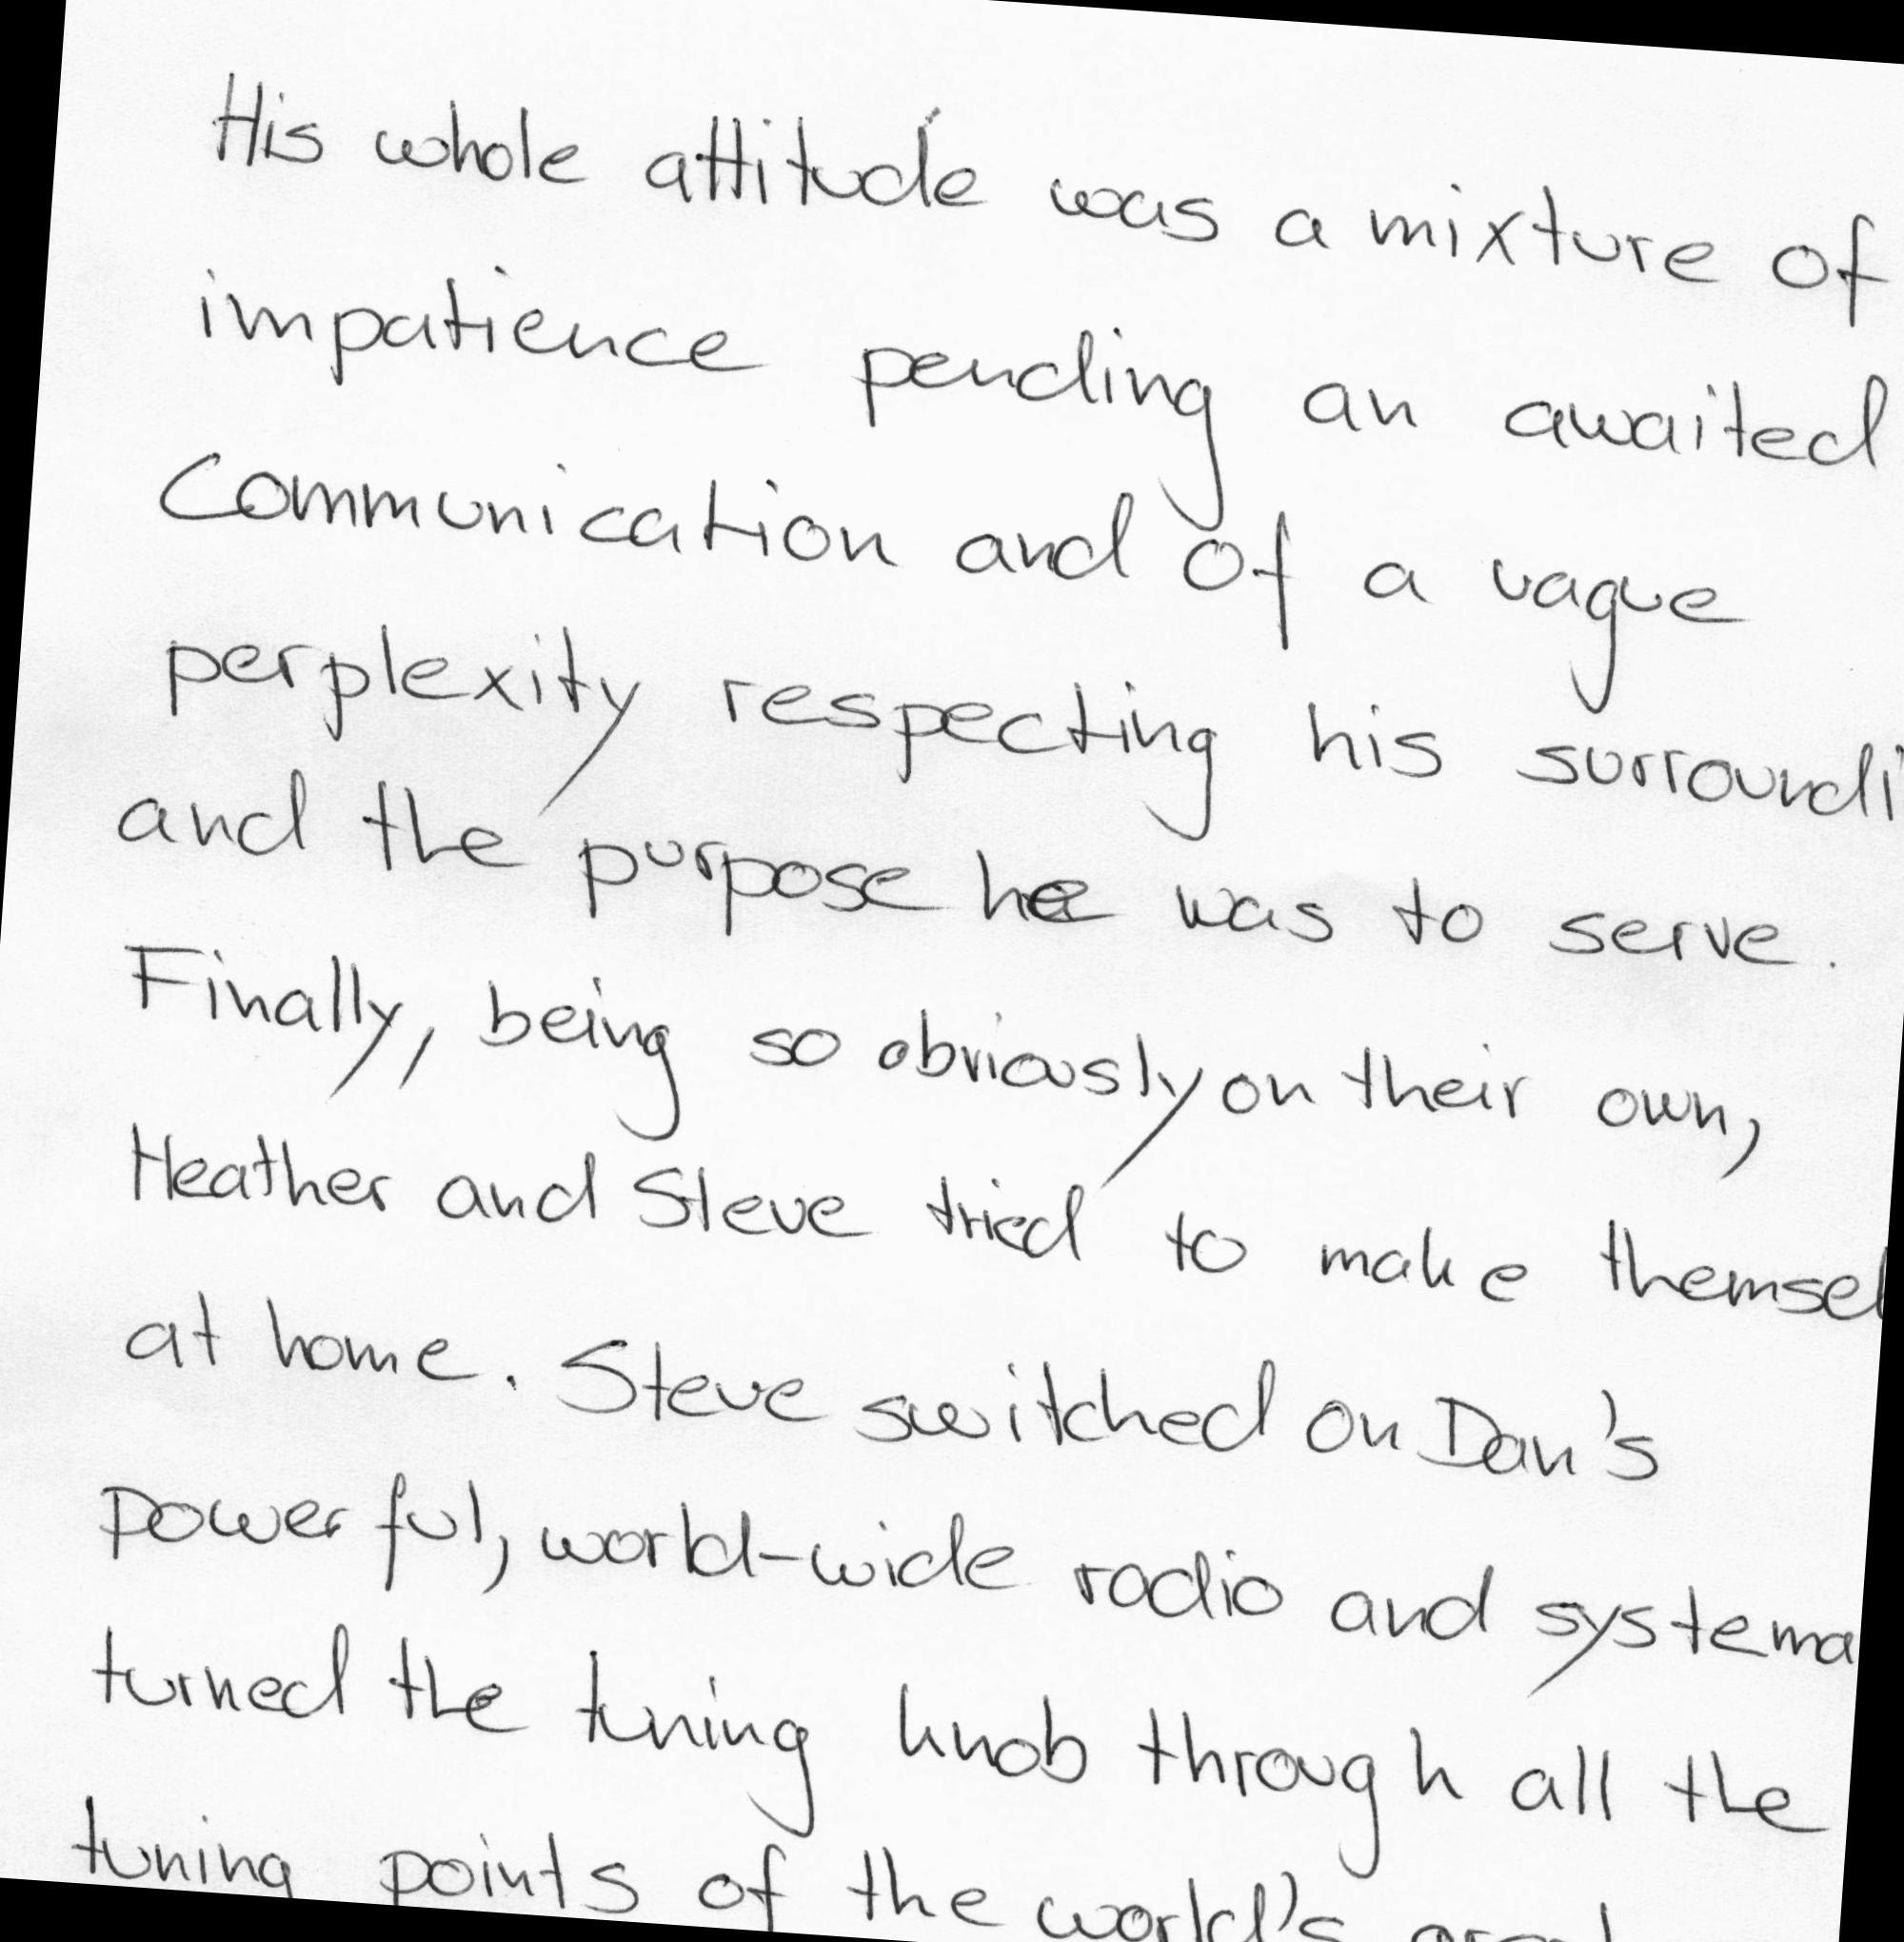 His whole attitude was a mixture of
impatience pending an awaited
Communication and of a vague
perplexity respecting his surroundi
and the purpose he was to serve.
Finally, being so obviously on their own,
Heather and Steve tried to make themsel
at home. Steve switched on Dan's
powerful, world-wide radio and systema
turned the tuning knob through all the
tuning points of the world's